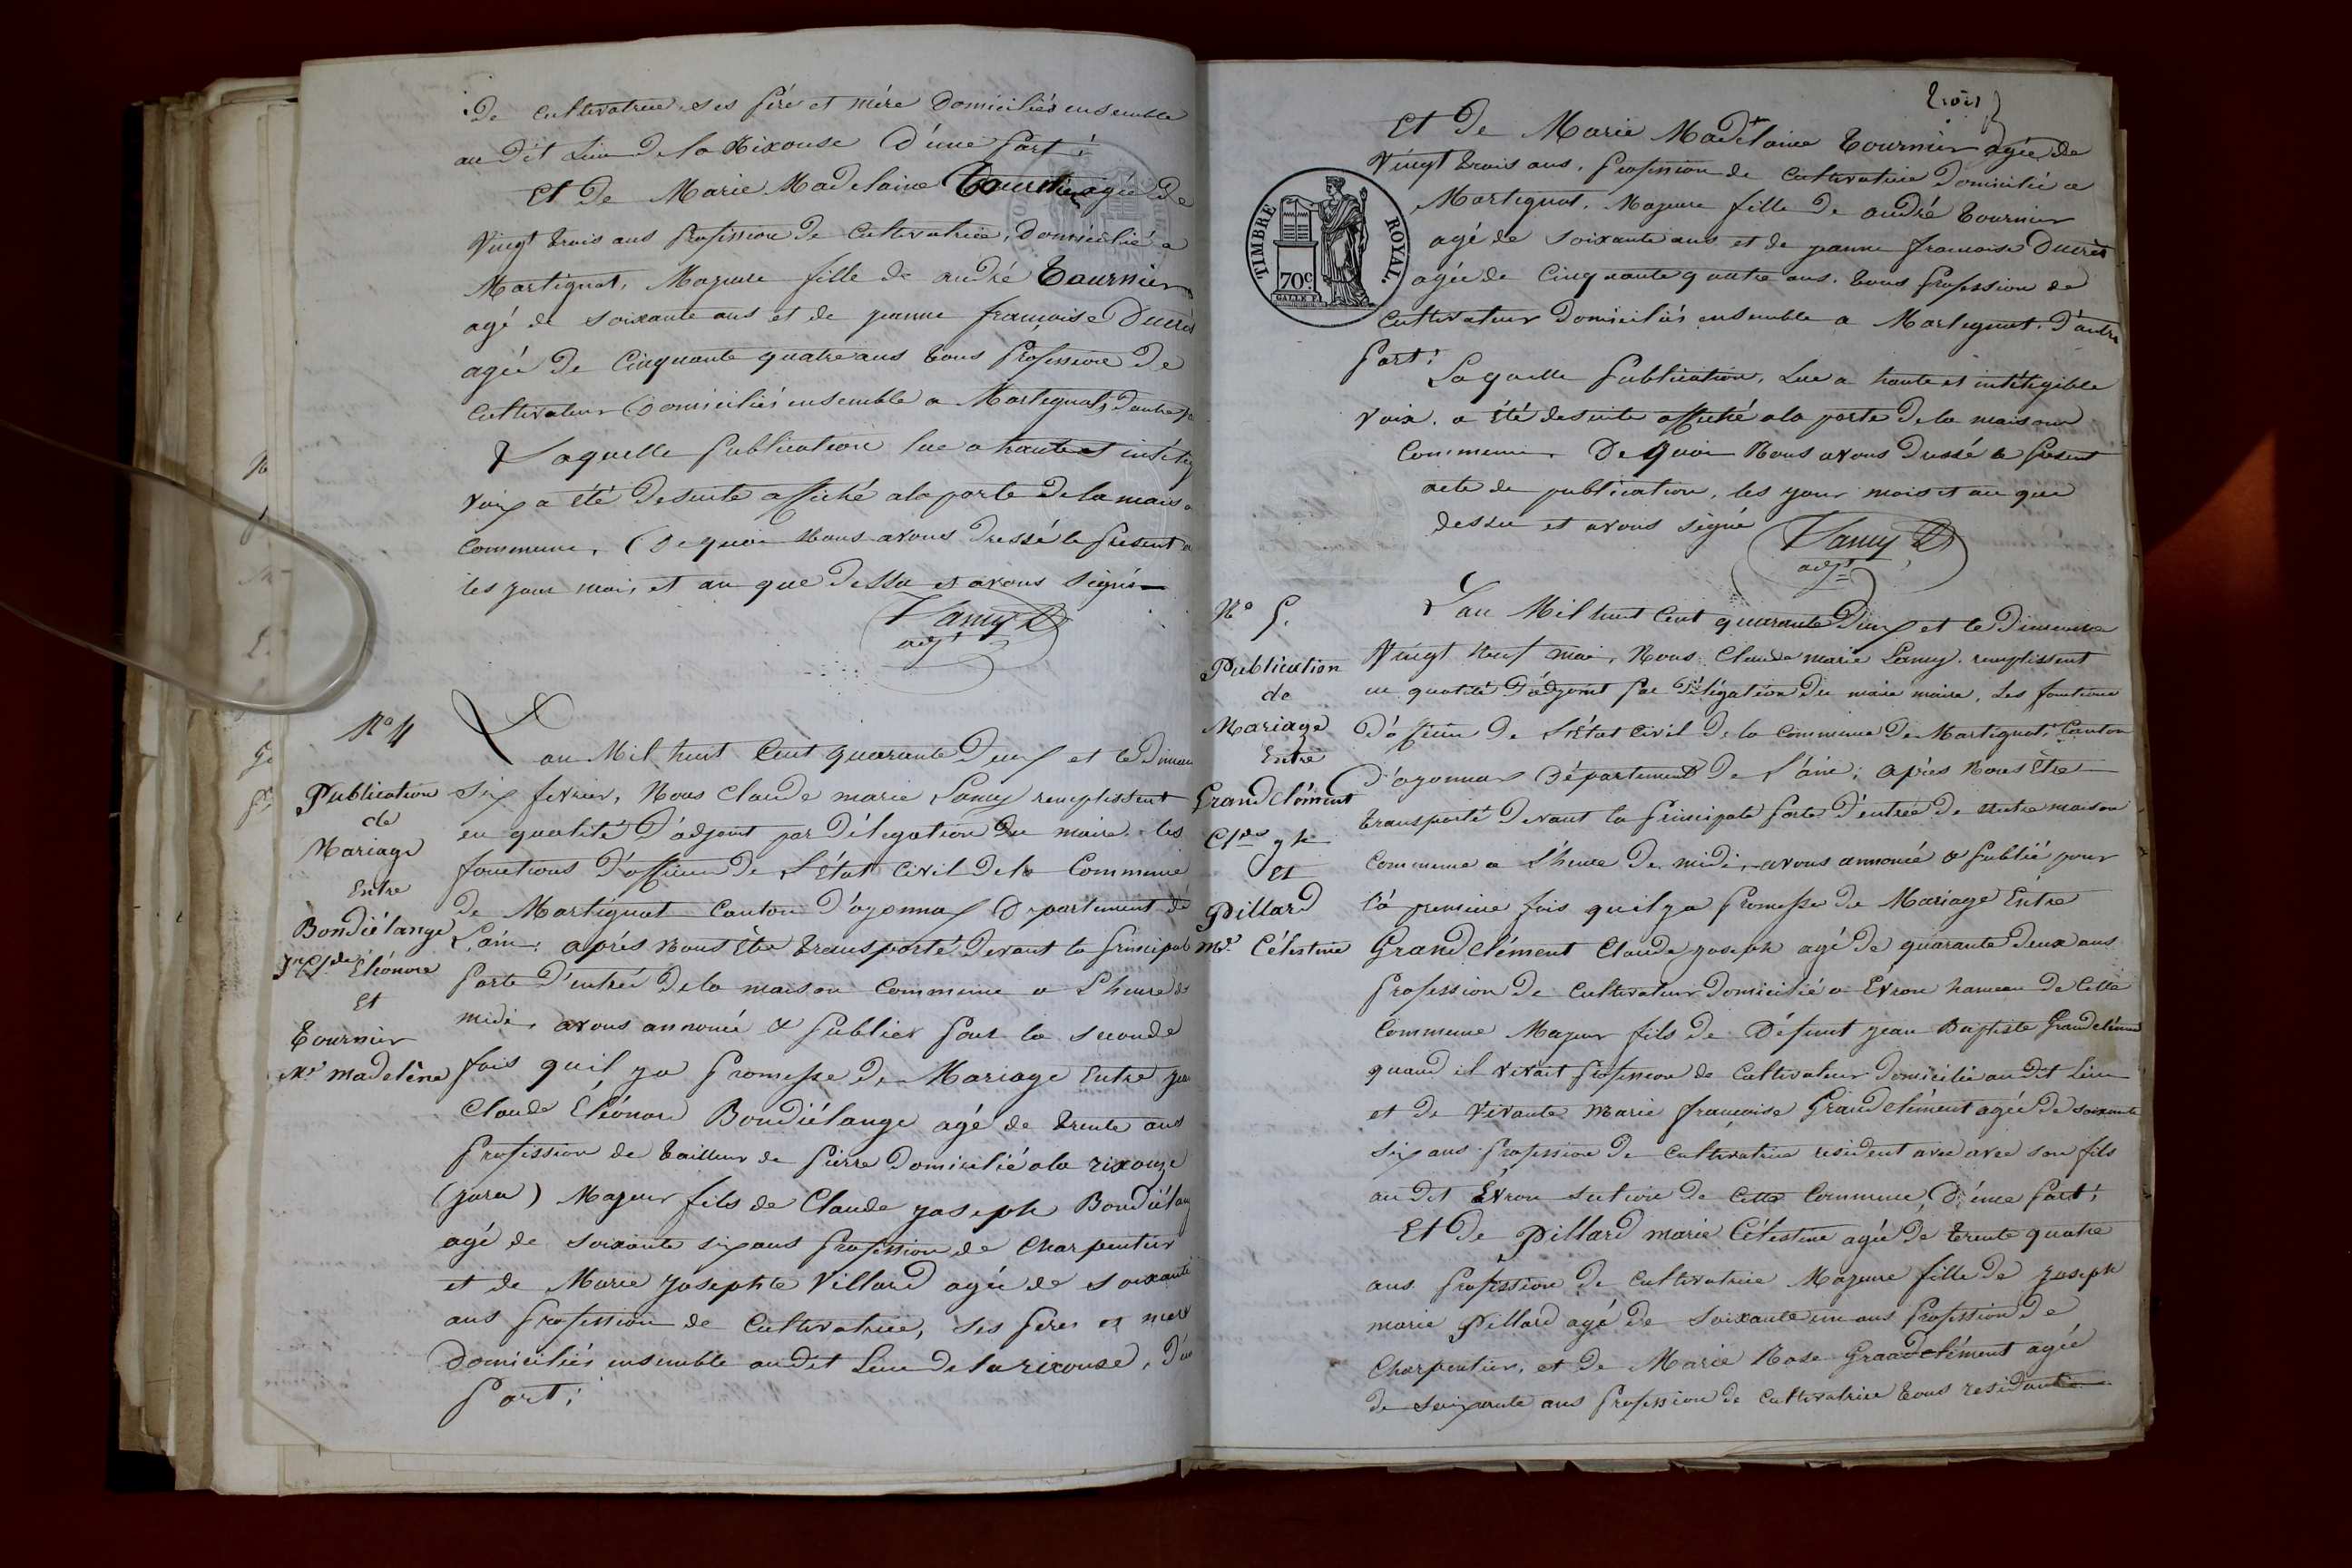 de cultivatrice, ses père et mère domiciliés ensemble
au dit Lieu de la Rixouse d'une part;
Et de Marie Madelaine Tournier agée de
vingt trois ans profission de cultivatrice, domicilié a
Martignat, Majeure fille de andré Tournier
agé de soixante ans et de jeanne françoise Ducrèt
agée de Cinquante quatre ans tous profession de
cultivateur domiciliés ensemble a Martignat, d'autre
Laquelle publication lue a haute et
voix a été desuite affiché a la porte de la
commune, De quoi Nous avons dressé le présent
les jour mois et an que dessu et avons signé
Lamy
adjt
N° 4
Publication
de
Mariage
Entre
Bondiélange
Jn Cde Eléonore
Et
Tournier
Me madelène
L'an Mil huit Cent quarante deux et le
six fevrier, Nous Claude marie Lamy remplissent
en qualité d'adjoint par délegation du maire les
fonctions d'officier de l'état Civil de la Commune
de Martignat Canton d'ojonnax département de
L'ain: après nous être transporté devant la principal
porte d'entrée de la maison Commune a l'heure de
midi, avons annoncé & publier pour la seconde
fois qu'il ya promesse de Mariage Entre
Claude Eléonore Bondiélange agé de trente ans
profission de tailleur de pierre domicilié a la rixouze
(jura) Majeur fils de Claude joseph
agé de soixante six ans profession de Charpentier
et de Marie josephte Villard agée de soixante
ans profession de Cultivatrice, ses pères et mère
domiciliés ensemble au dit Lieu de la rixouse, d'une
part;
trois
TIMBRE ROYAL.
70c
Et de Marie Madelaine Tournier agée de
vingt trois ans, profession de cultivatrice domicilié a
Martignat, Majeure fille de andré Tournier
agé de soixante ans et de jeanne francoise Ducrèt
agée de cinquante quatre ans. tous profession de
cultivateur domiciliés ensemble a Martignat. d'autre
part;
Laquelle publication, Lue a haute et intétigible
voix. a été desuite affiché a la porte de la maison
Commune De quoi Nous avons dressé le présent
acte de publication, les jour mois et an que
dessu et avons signé
Lamy
adjt
N° 5.
Publication
de
Mariage
Entre
Grandclément
Cde jh
Et
Pillard
Me Célestine
L'an Mil huit Cent quarante deux et le Dimanche
Vingt neuf mai, Nous Claude marie Lamy remplissent
en qualité d'adjoint par délégation du maire maire, Les fonctions
d'officier de l'état civil de la Commune de Martignat, Canton
d'ojonnax département de l'ain; après nous être
transporté devant la principale porte d'entrée de nutre maison
Commune a l'heure de midi, avons annoncé & publié pour
la première fois qu'il ya promesse de Mariage Entre
Grandclément Claude joseph agé de quarante deux ans
profession de cultivateur domicilié a Evron hameau de Cette
Commune Majeur fils de Défunt jean Baptiste Grandclément
quand il vivait profession de cultivateur domicilié au dit Lieu
et de vivante Marie françoise Grandclément agée de soixante
six ans profession de cultivatrice résident avec avec son fils
au dit Evron section de cette Commune, d'une part;
Et de Pillard marie Célestine agée de trente quatre
ans profession de cultivatrice Majeure fille de joseph
marie Pillard agé de soixante un ans profession de
Charpentier, et de Marie Rose Grandclément agée
de soixante ans profession de cultivatrice tous residants